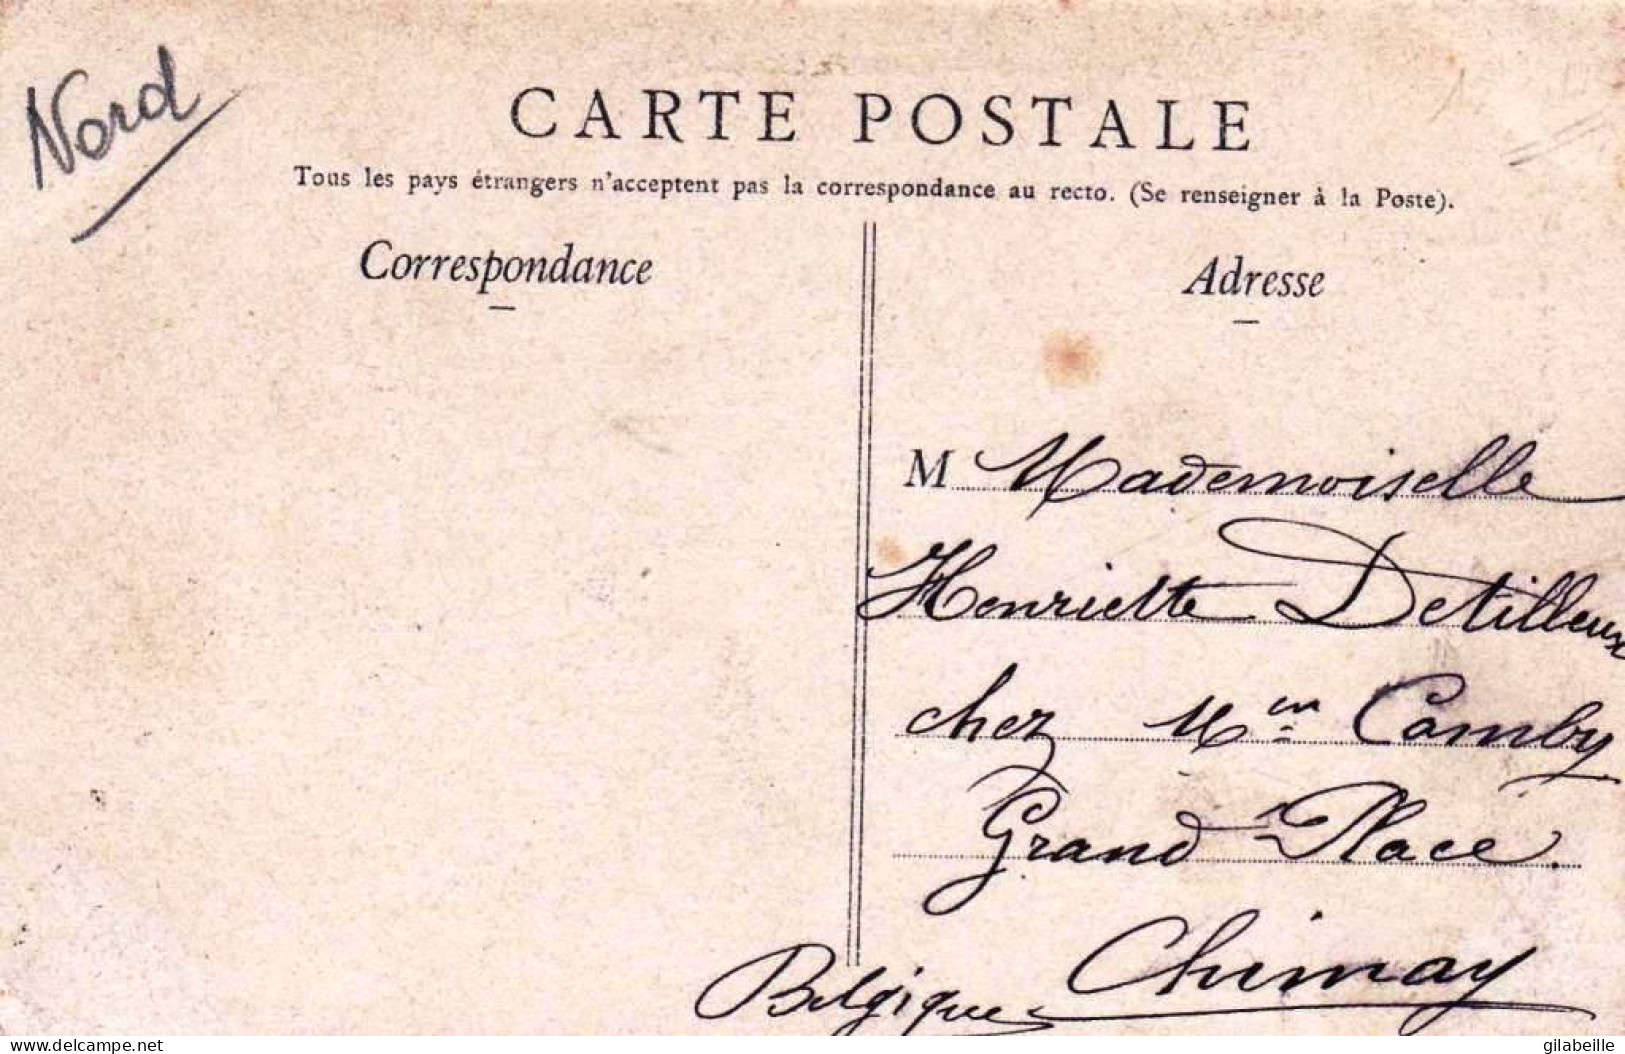 Nord
CARTE POSTALE
Tous les pays étrangers n'acceptent pas la correspondance au recto. (Se renseigner à la Poste).
Correspondance
Adresse
M Mademoiselle
Henriette Detilleux
chez Mme Camby
Grand Place.
Chimay
Belgique
delcampe.net
gilabeille